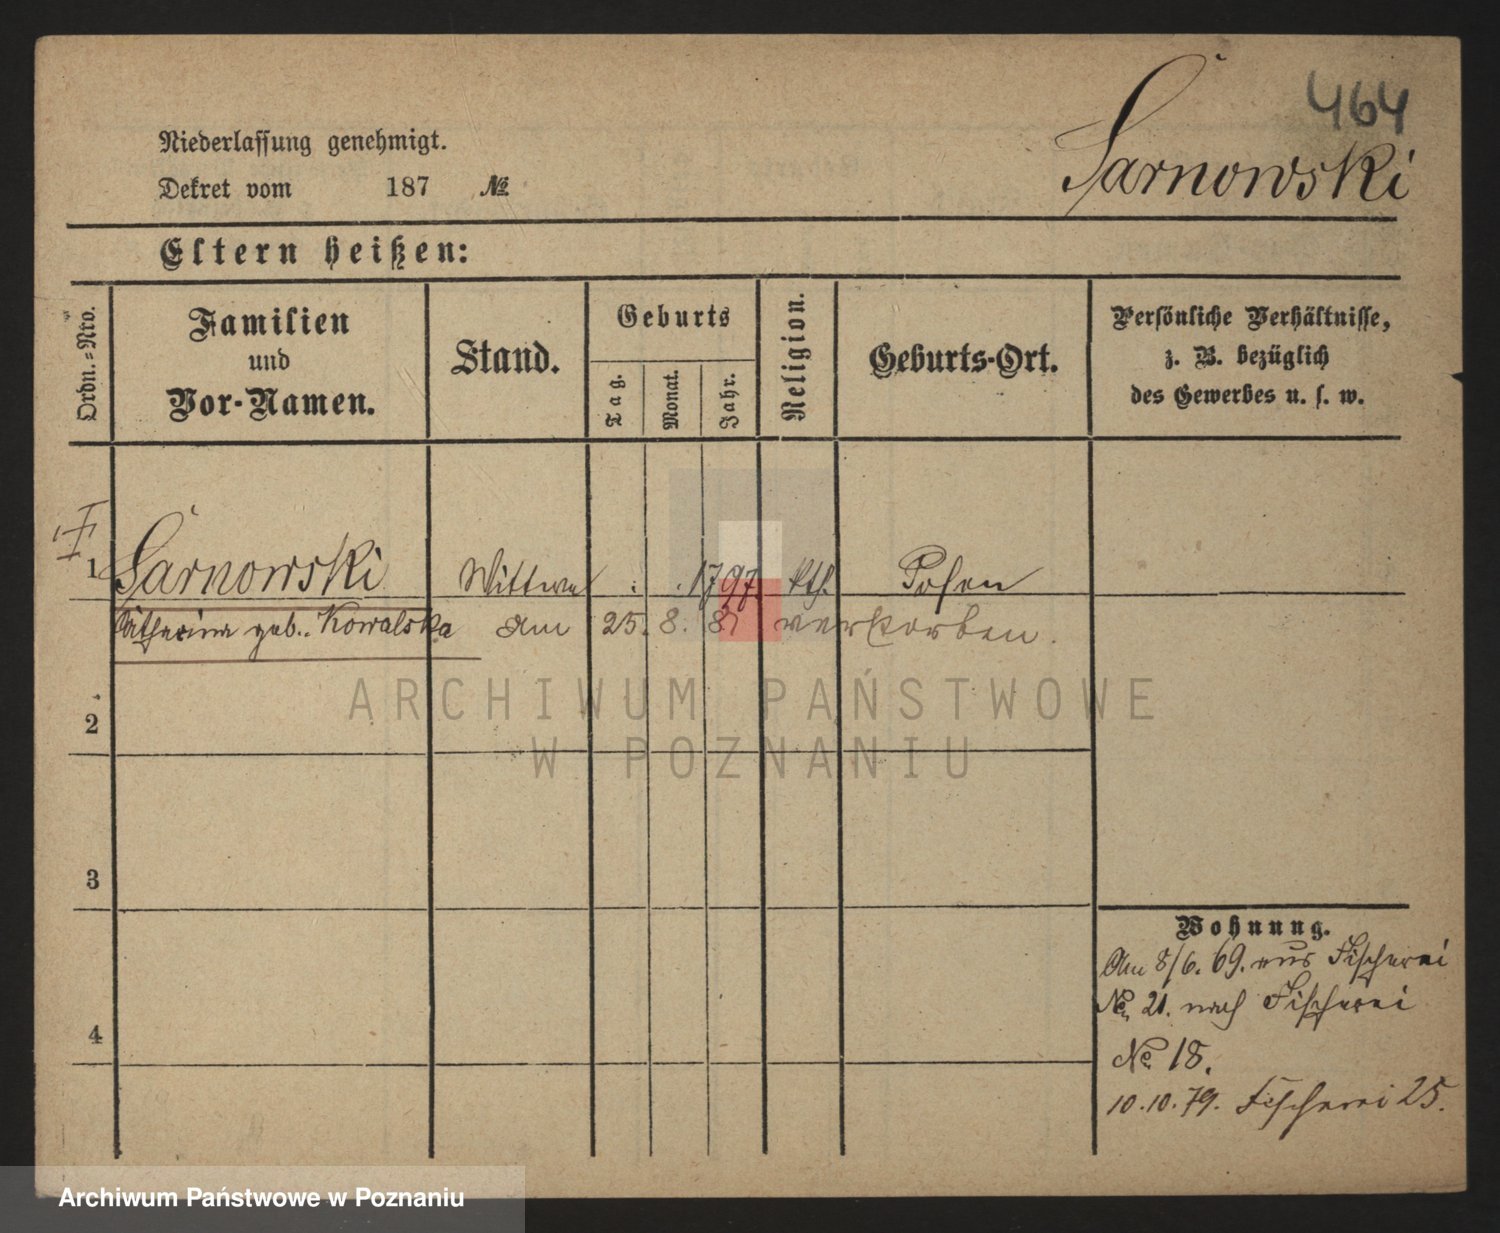 464
Sarnowski
Niederlassung genehmigt.
Dekret vom 187 №
Eltern heißen:
Ordn.=Nro.
Familien
und
Vor-Namen.
Stand.
Geburts
Tag.
Monat.
Jahr.
Religion.
Geburts-Ort.
Persönliche Verhältnisse,
z. B. bezüglich
des Gewerbes u. s. w.
1 Sarnowski Wittwe . . 1797. kth. Posen
Catharina geb. Kowalska Am 25. 8. 81 verstorben.
2
3
4
Wohnung.
Am 8/6. 69. aus Fischerei
№ 21. nach Fischerei
№ 18.
10.10.79. Fischerei 25.
ARCHIWUM PAŃSTWOWE
W POZNANIU
Archiwum Państwowe w Poznaniu